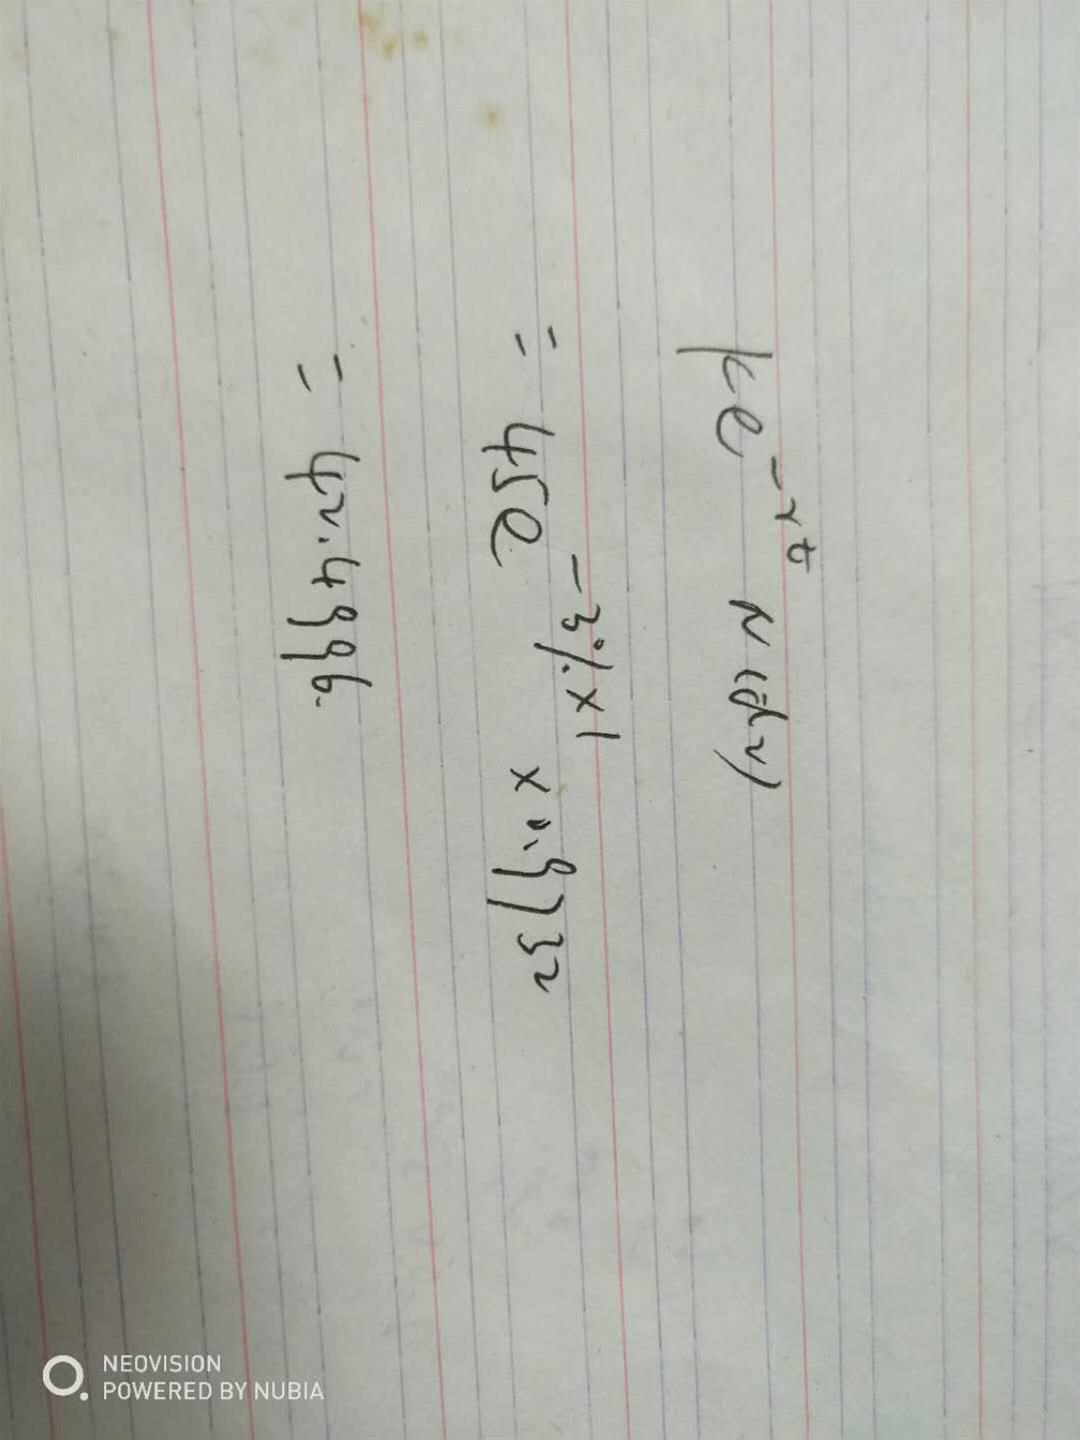 ke^{-rt} N(d2)
= 45e^{-3%×1} × 0.9732
= 42.4996.
NEOVISION
POWERED BY NUBIA